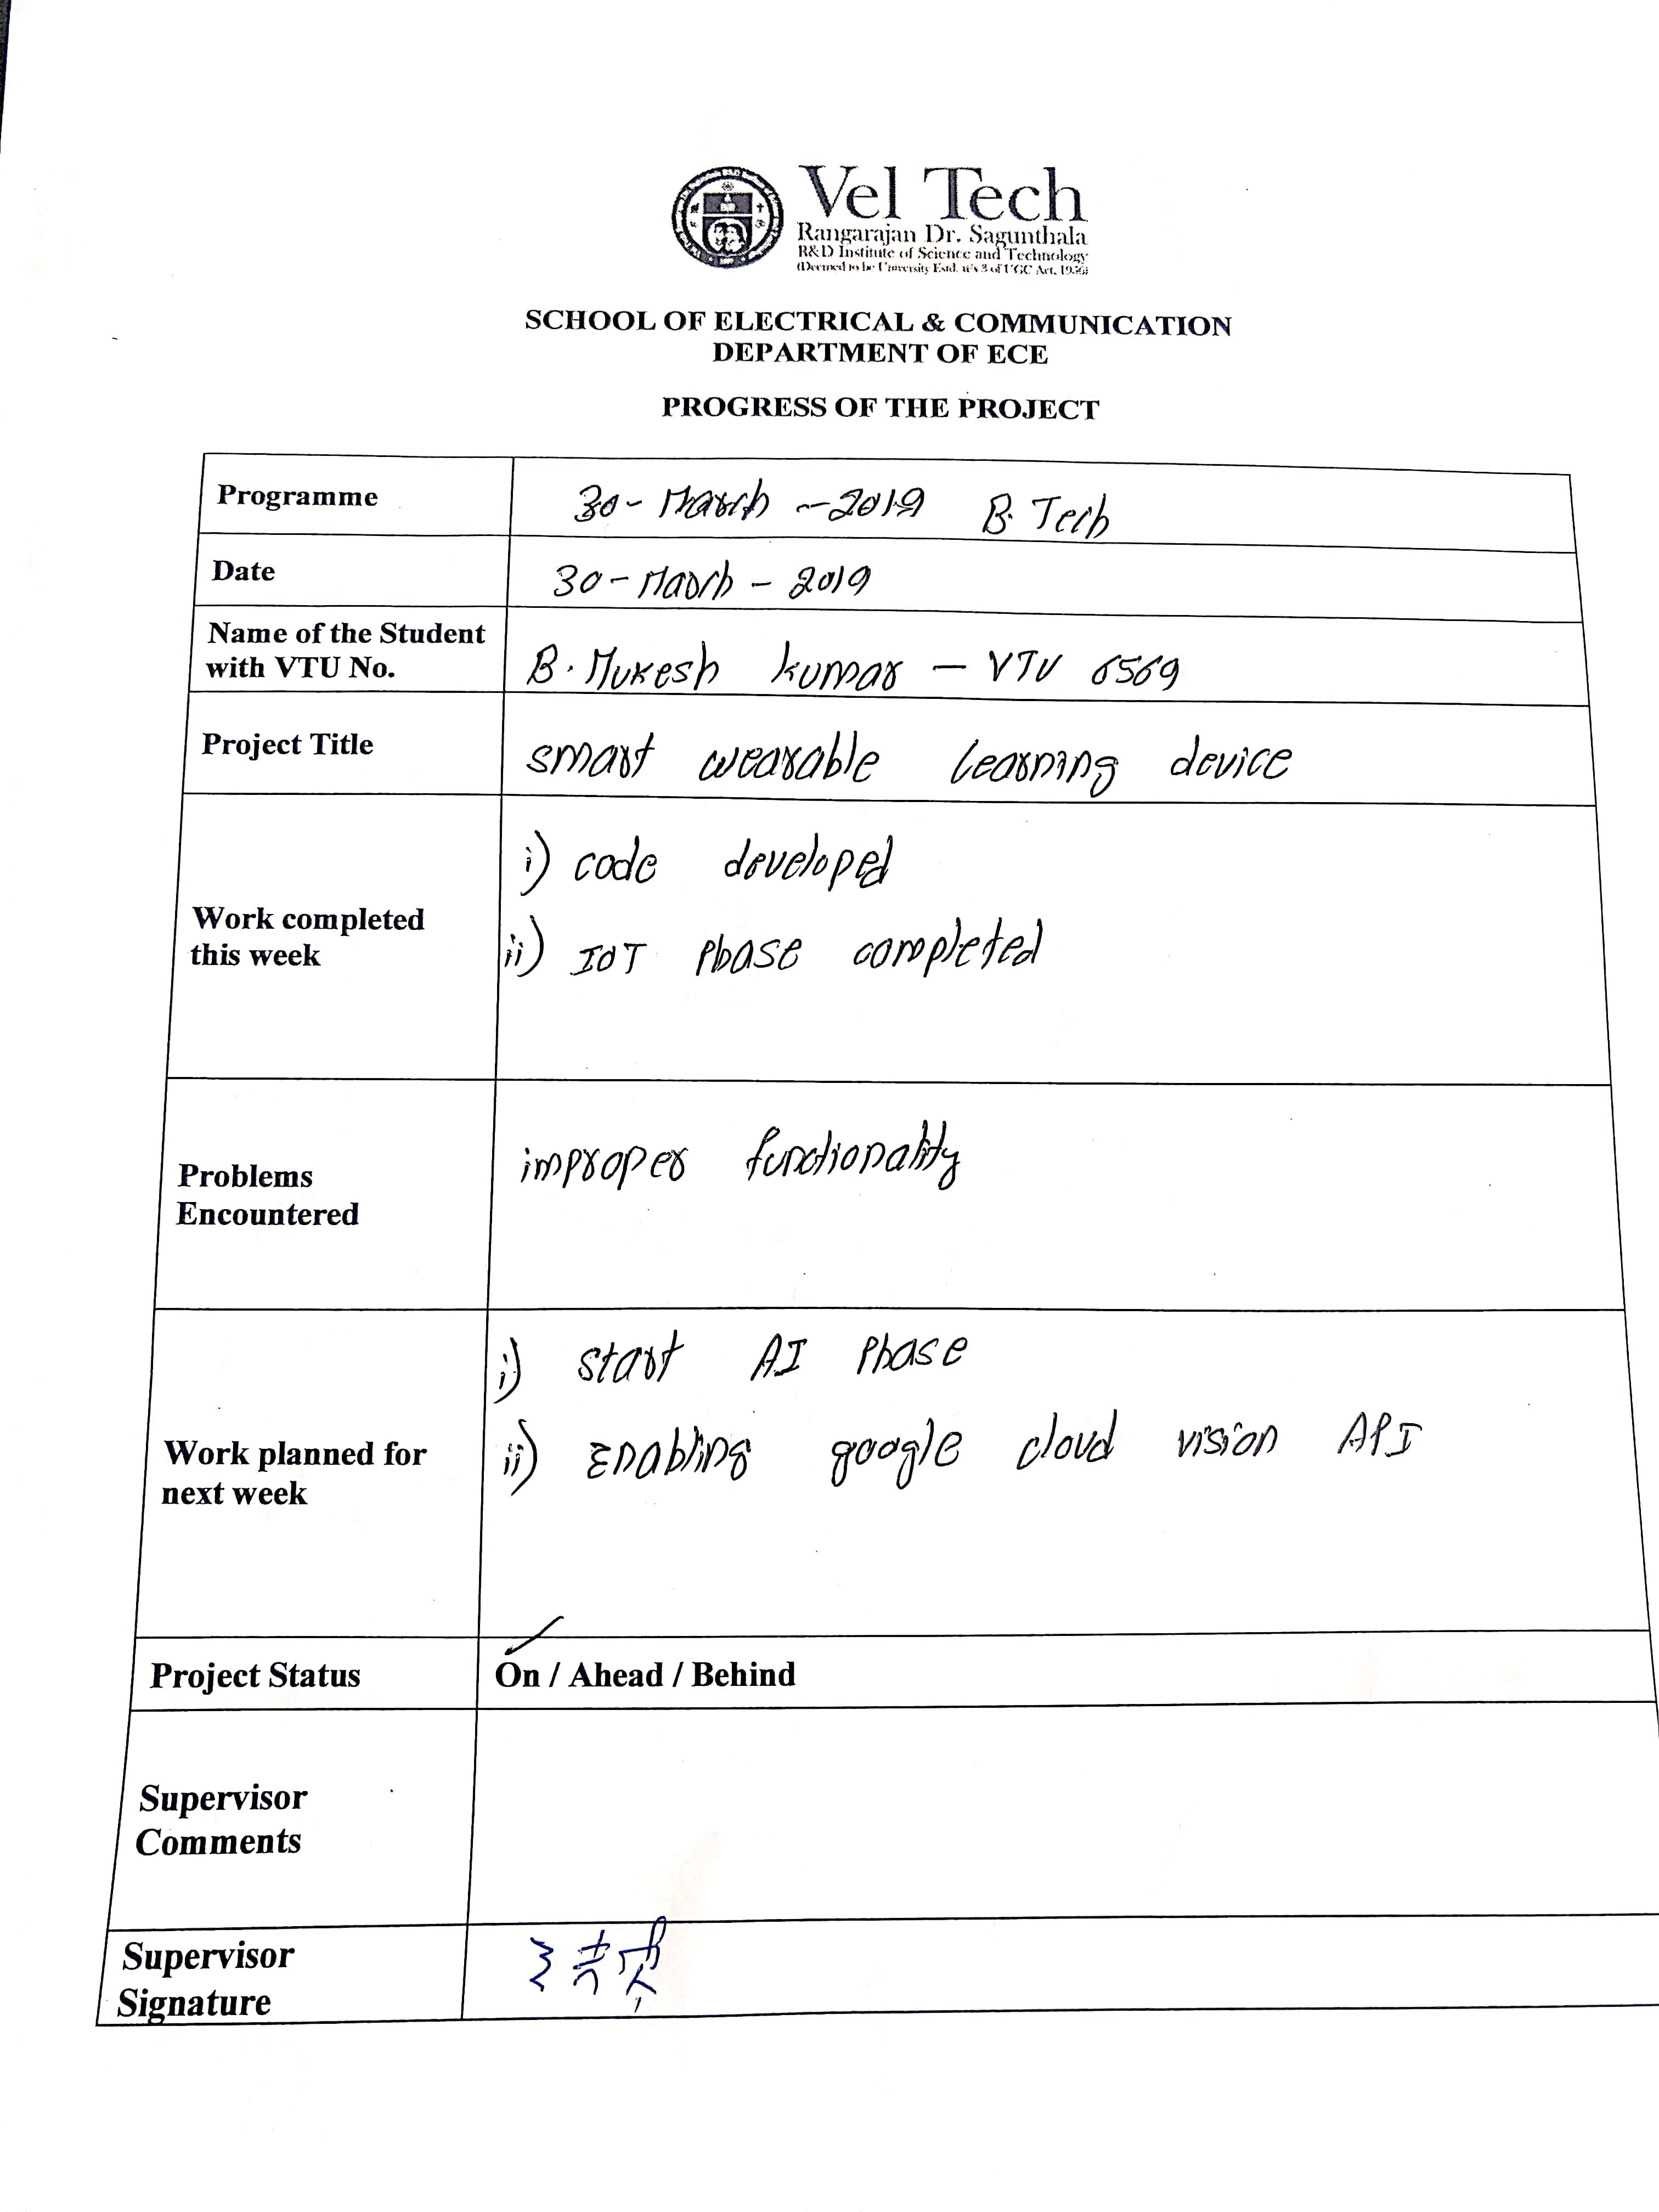 Vel Tech
Rangarajan Dr. Sagunthala
R&D Institute of Science and Technology
(Deemed to be University Estd. u/s 3 of UGC Act, 1956)
SCHOOL OF ELECTRICAL & COMMUNICATION
DEPARTMENT OF ECE
PROGRESS OF THE PROJECT
Programme 30-March-2019 B.Tech
Date 30-March-2019
Name of the Student
with VTU No. B.Mukesh kumar - VTU 6569
Project Title smart wearable learning device
Work completed
this week
i) code developed
ii) IOT Phase completed
Problems
Encountered
improper functionality
Work planned for
next week
i) start AI Phase
ii) Enabling google cloud vision API
Project Status On / Ahead / Behind
Supervisor
Comments
Supervisor
Signature